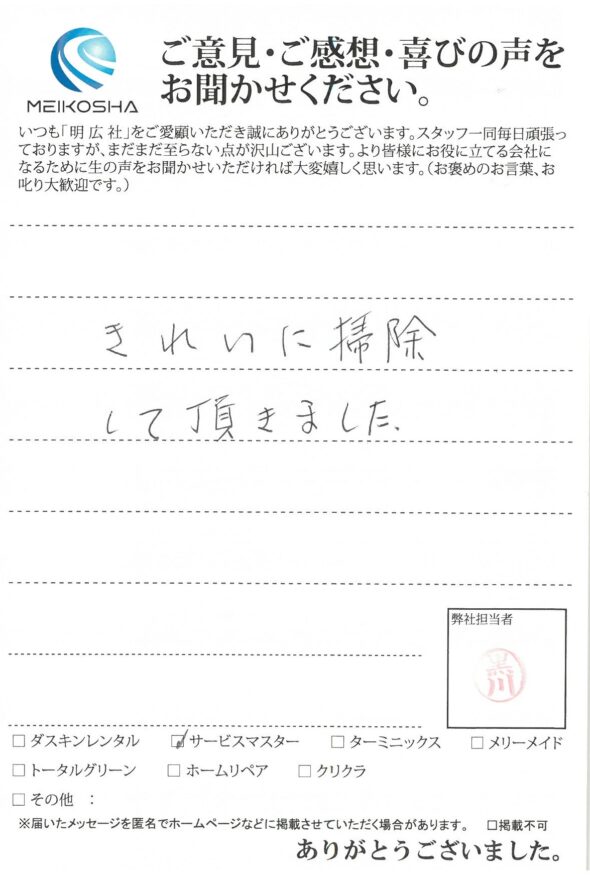 MEIKOSHA
ご意見・ご感想・喜びの声を
お聞かせください。
いつも「明広社」をご愛顧いただき誠にありがとうございます。スタッフ一同毎日頑張っ
ておりますが、まだまだ至らない点が沢山ございます。より皆様にお役に立てる会社に
なるために生の声をお聞かせいただければ大変嬉しく思います。（お褒めのお言葉、お
叱り大歓迎です。）
きれいに掃除
して頂きました。
弊社担当者
黒川
□ ダスキンレンタル ☑ サービスマスター □ ターミニックス □ メリーメイド
□ トータルグリーン □ ホームリペア □ クリクラ
□ その他 ：
※届いたメッセージを匿名でホームページなどに掲載させていただく場合があります。 □掲載不可
ありがとうございました。